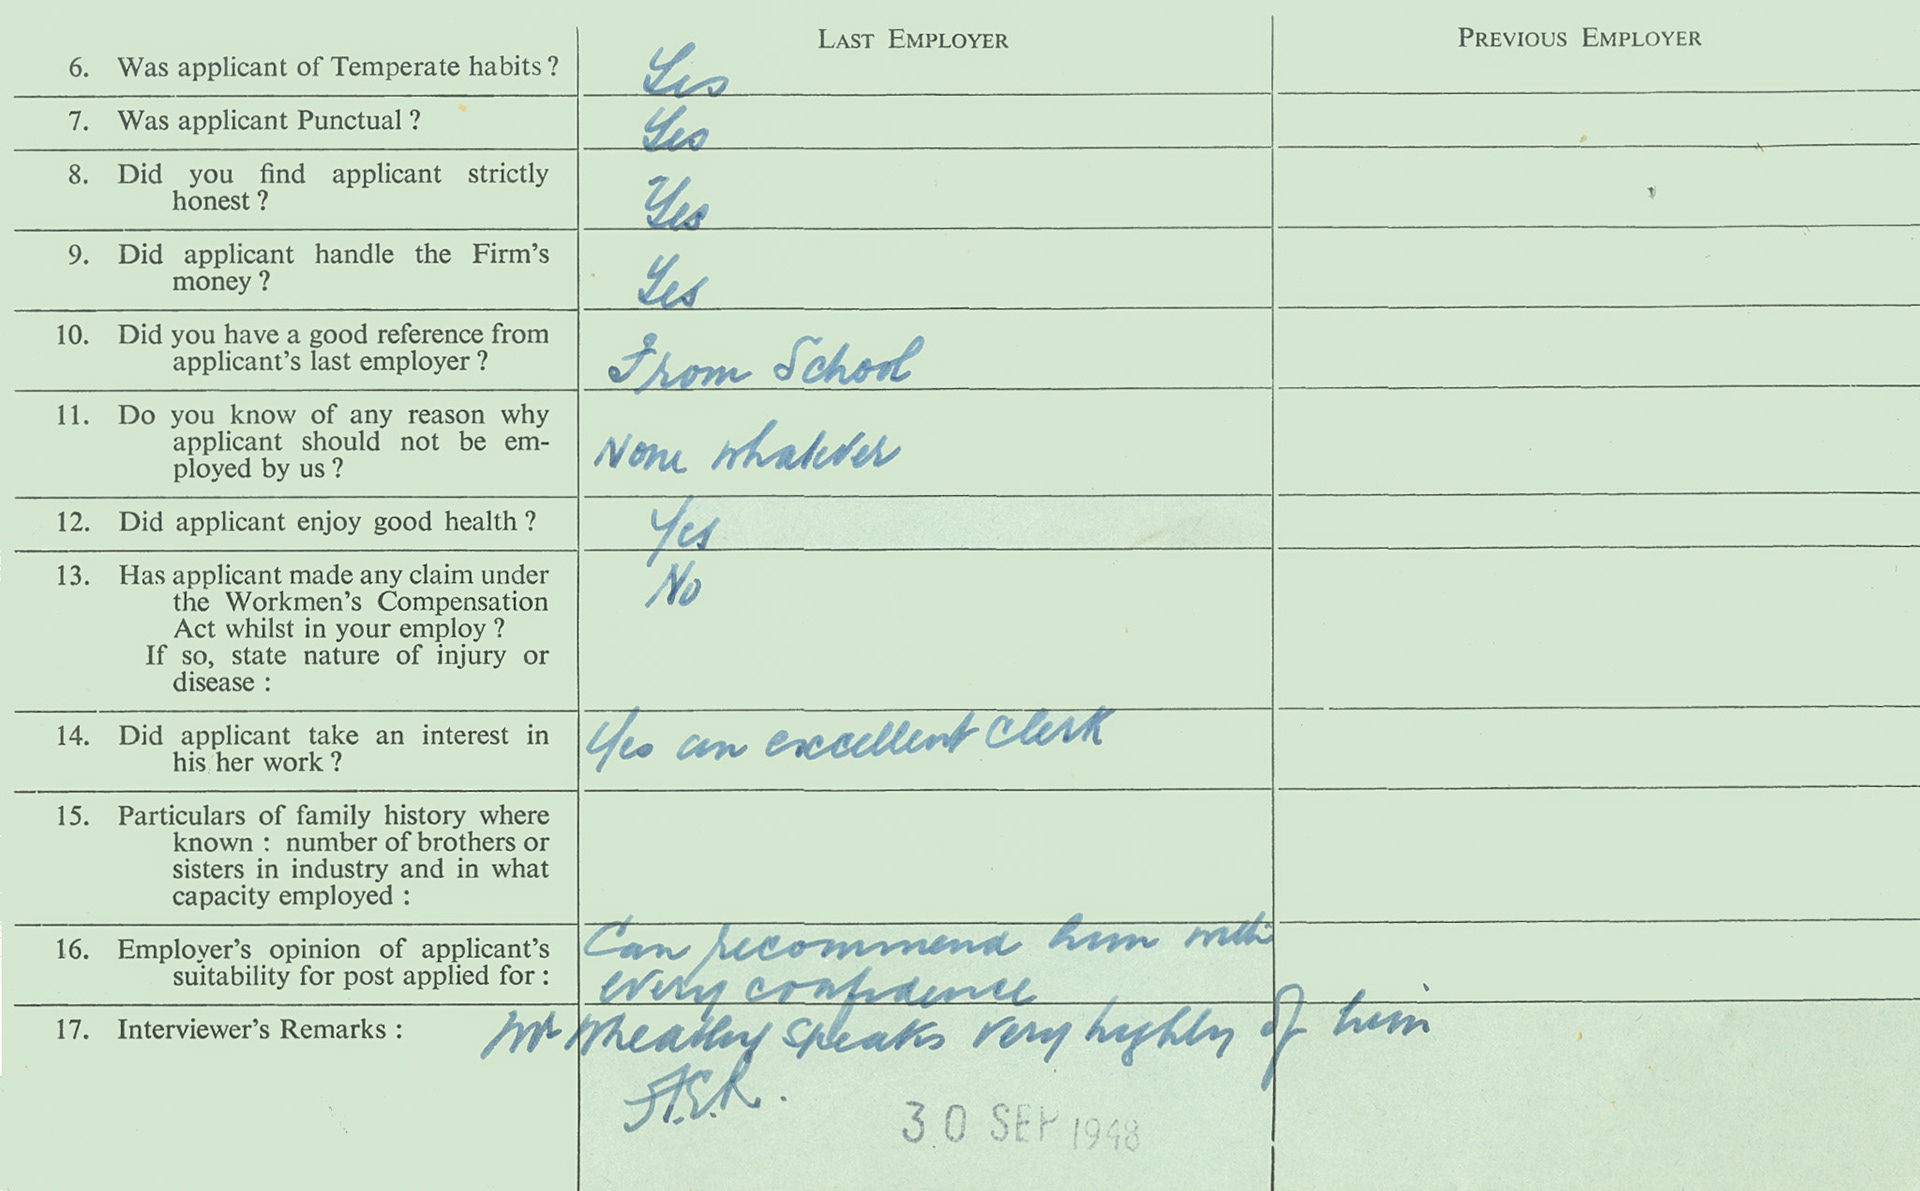 LAST EMPLOYER PREVIOUS EMPLOYER
6. Was applicant of Temperate habits? Yes
7. Was applicant Punctual? Yes
8. Did you find applicant strictly
honest? Yes
9. Did applicant handle the Firm's
money? Yes
10. Did you have a good reference from
applicant's last employer? From School
11. Do you know of any reason why
applicant should not be em-
ployed by us? None whatever
12. Did applicant enjoy good health? Yes
13. Has applicant made any claim under No
the Workmen's Compensation
Act whilst in your employ?
If so, state nature of injury or
disease :
14. Did applicant take an interest in Yes an excellent Clerk
his her work?
15. Particulars of family history where
known : number of brothers or
sisters in industry and in what
capacity employed :
16. Employer's opinion of applicant's Can recommend him with
suitability for post applied for : every confidence
17. Interviewer's Remarks : Mr Wheatley speaks very highly of him
F.E.R.
30 SEP 1948